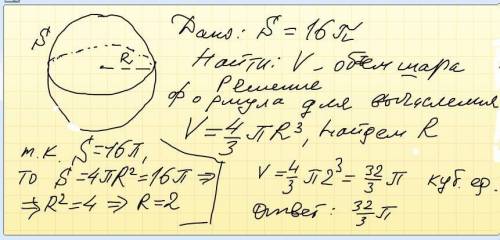 S
R
Дано: S = 16π
Найти: V - объем шара
Решение
формула для вычисления
V = 4/3 πR³, найдем R
т.к. S = 16π,
то S = 4πR² = 16π ⇒
⇒ R² = 4 ⇒ R = 2
V = 4/3 π2³ = 32/3 π куб. ед.
Ответ: 32/3 π